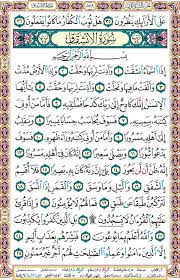 عَلَى ٱلْأَرَآئِكِ يَنظُرُونَ ٣٥ هَلْ ثُوِّبَ ٱلْكُفَّارُ مَا كَانُوا۟ يَفْعَلُونَ ٣٦
سُورَةُ الِانْشِقَاقِ
بِسْمِ ٱللَّهِ ٱلرَّحْمَٰنِ ٱلرَّحِيمِ
إِذَا ٱلسَّمَآءُ ٱنشَقَّتْ ١ وَأَذِنَتْ لِرَبِّهَا وَحُقَّتْ ٢ وَإِذَا ٱلْأَرْضُ مُدَّتْ ٣
وَأَلْقَتْ مَا فِيهَا وَتَخَلَّتْ ٤ وَأَذِنَتْ لِرَبِّهَا وَحُقَّتْ ٥ يَٰٓأَيُّهَا
ٱلْإِنسَٰنُ إِنَّكَ كَادِحٌ إِلَىٰ رَبِّكَ كَدْحًا فَمُلَٰقِيهِ ٦ فَأَمَّا مَنْ أُوتِىَ
كِتَٰبَهُۥ بِيَمِينِهِۦ ٧ فَسَوْفَ يُحَاسَبُ حِسَابًا يَسِيرًا ٨ وَيَنقَلِبُ
إِلَىٰٓ أَهْلِهِۦ مَسْرُورًا ٩ وَأَمَّا مَنْ أُوتِىَ كِتَٰبَهُۥ وَرَآءَ ظَهْرِهِۦ ١٠ فَسَوْفَ
يَدْعُوا۟ ثُبُورًا ١١ وَيَصْلَىٰ سَعِيرًا ١٢ إِنَّهُۥ كَانَ فِىٓ أَهْلِهِۦ مَسْرُورًا ١٣
إِنَّهُۥ ظَنَّ أَن لَّن يَحُورَ ١٤ بَلَىٰٓ إِنَّ رَبَّهُۥ كَانَ بِهِۦ بَصِيرًا ١٥ فَلَآ أُقْسِمُ
بِٱلشَّفَقِ ١٦ وَٱلَّيْلِ وَمَا وَسَقَ ١٧ وَٱلْقَمَرِ إِذَا ٱتَّسَقَ ١٨ لَتَرْكَبُنَّ
طَبَقًا عَن طَبَقٍ ١٩ فَمَا لَهُمْ لَا يُؤْمِنُونَ ٢٠ وَإِذَا قُرِئَ
عَلَيْهِمُ ٱلْقُرْءَانُ لَا يَسْجُدُونَ ٢١ بَلِ ٱلَّذِينَ كَفَرُوا۟ يُكَذِّبُونَ ٢٢
وَٱللَّهُ أَعْلَمُ بِمَا يُوعُونَ ٢٣ فَبَشِّرْهُم بِعَذَابٍ أَلِيمٍ ٢٤
إِلَّا ٱلَّذِينَ ءَامَنُوا۟ وَعَمِلُوا۟ ٱلصَّٰلِحَٰتِ لَهُمْ أَجْرٌ غَيْرُ مَمْنُونٍۭ ٢٥